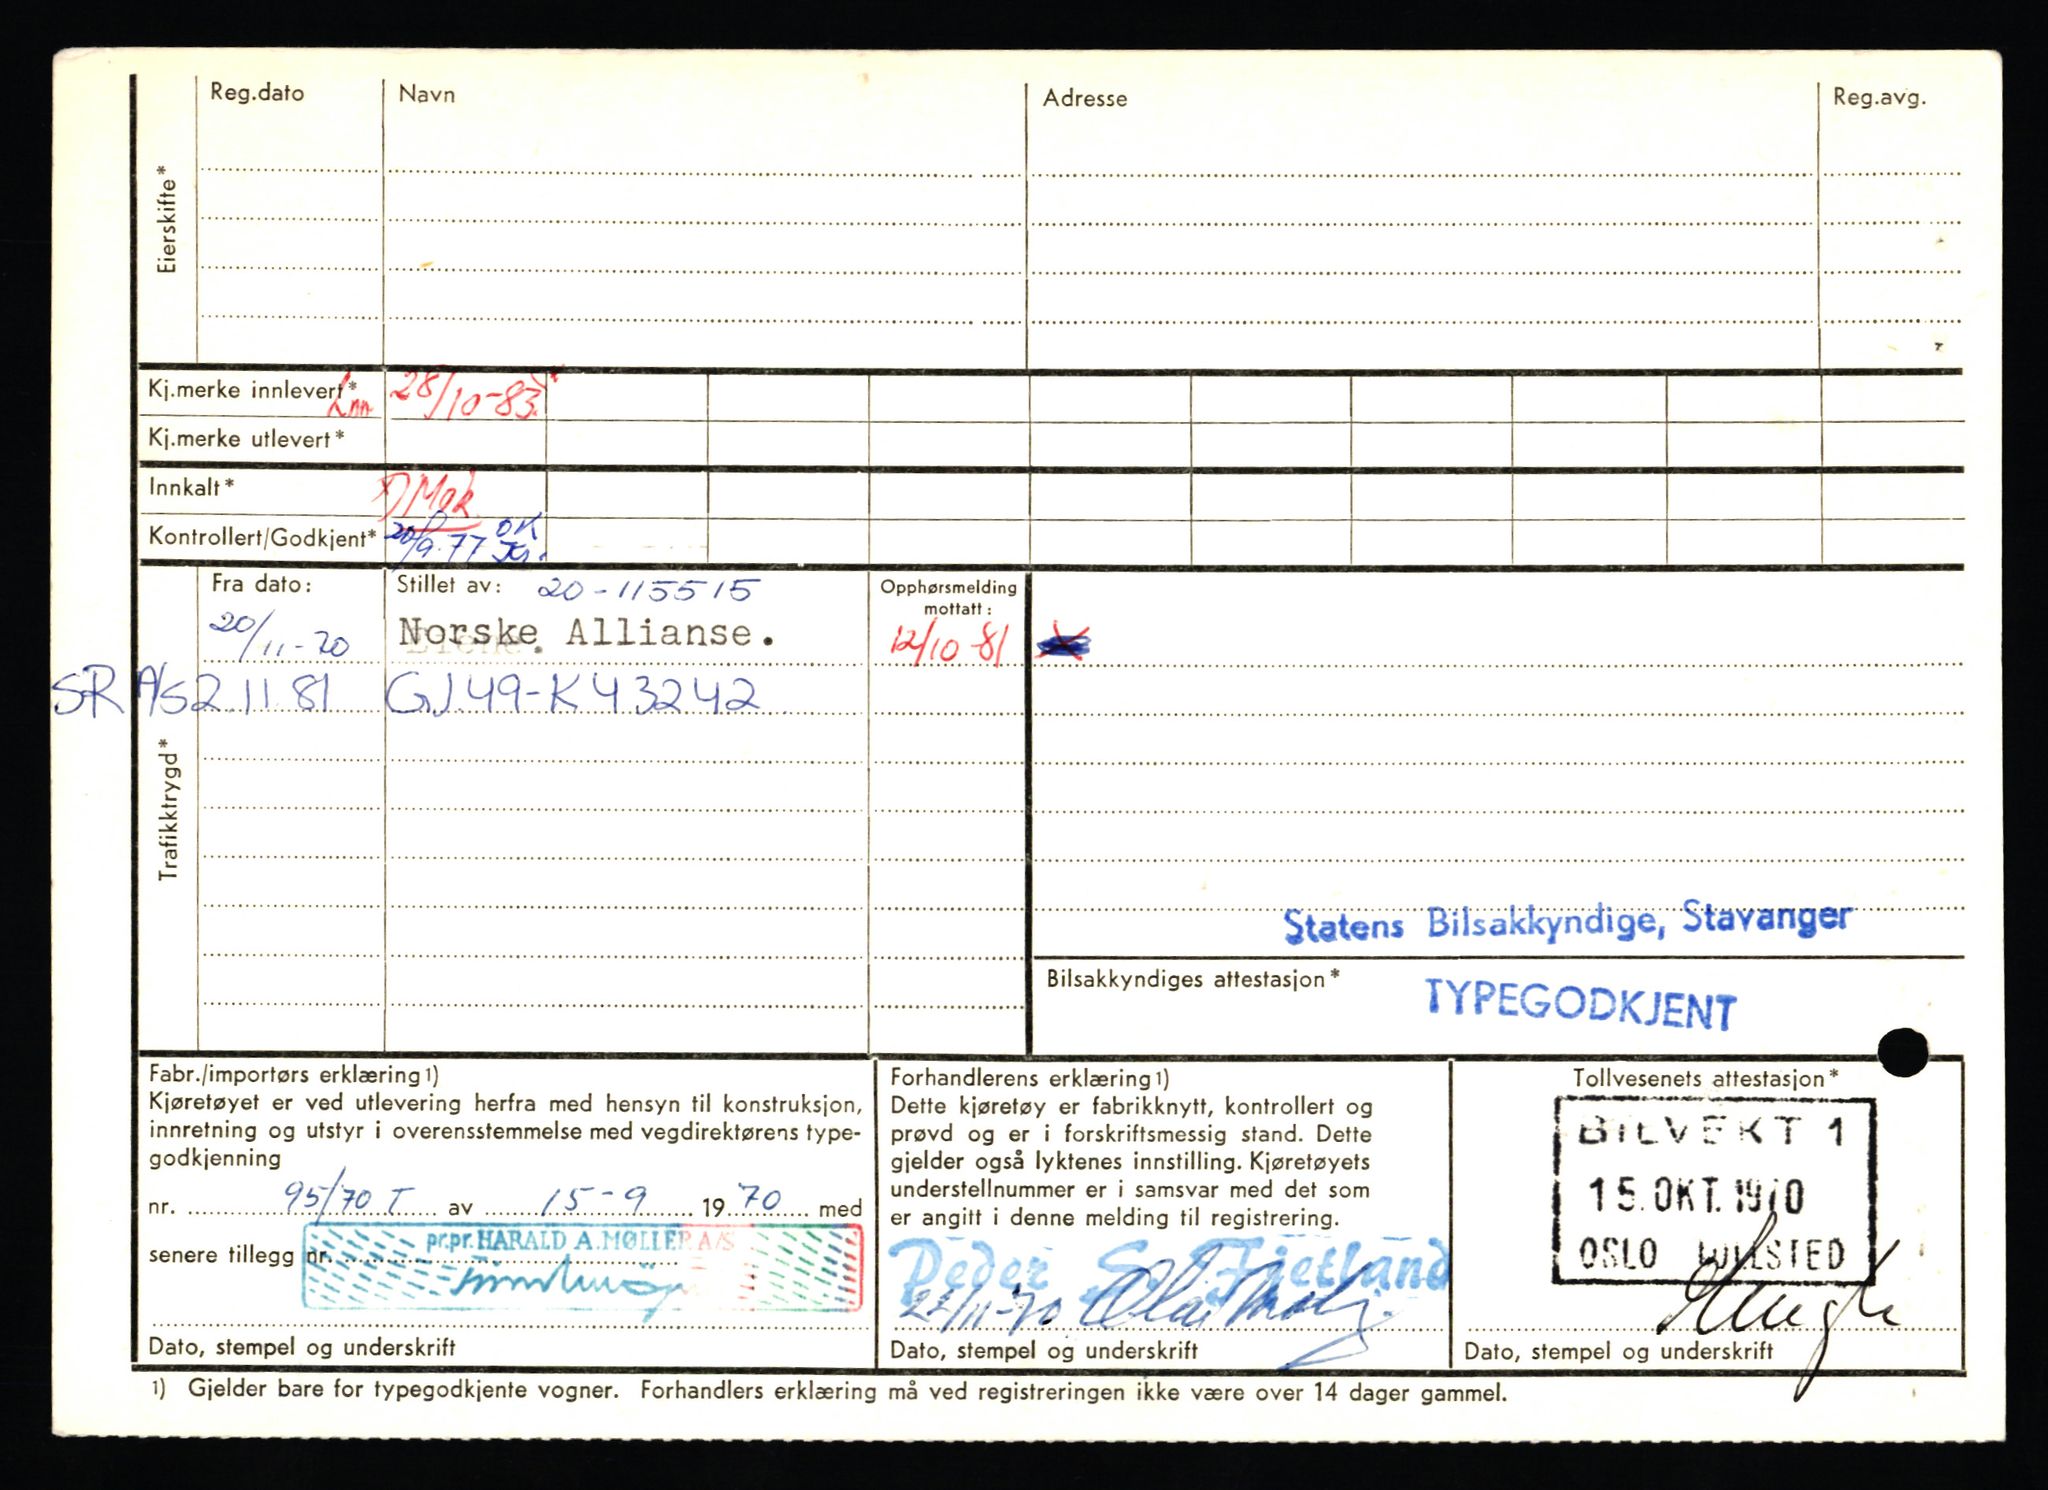 Reg.dato Navn Adresse Reg.avg.
Eierskifte*
Kj.merke innlevert* Inn 28/10-83
Kj.merke utlevert*
Innkalt*
Kontrollert/Godkjent* 20/9.77 OK
Trafikktrygd*
Fra dato: Stillet av: 20-115515 Opphørsmelding
mottatt:
20/11-70 Norske Allianse. 12/10-81
SR A/S 2.11.81 GJ49-K43242
Statens Bilsakkyndige, Stavanger
Bilsakkyndiges attestasjon* TYPEGODKJENT
Fabr./importørs erklæring1)
Kjøretøyet er ved utlevering herfra med hensyn til konstruksjon,
innretning og utstyr i overensstemmelse med vegdirektørens type-
godkjenning
nr. 95/70 T av 15-9 1970 med
senere tillegg nr. pr.pr. HARALD A. MØLLER A/S
Dato, stempel og underskrift
Forhandlerens erklæring1)
Dette kjøretøy er fabrikknytt, kontrollert og
prøvd og er i forskriftsmessig stand. Dette
gjelder også lyktenes innstilling. Kjøretøyets
understellnummer er i samsvar med det som
er angitt i denne melding til registrering.
Peder S. Fjetland
Dato, stempel og underskrift
Tollvesenets attestasjon*
BILVEKT 1
15. OKT. 1970
OSLO TOLLSTED
Dato, stempel og underskrift
1) Gjelder bare for typegodkjente vogner. Forhandlers erklæring må ved registreringen ikke være over 14 dager gammel.